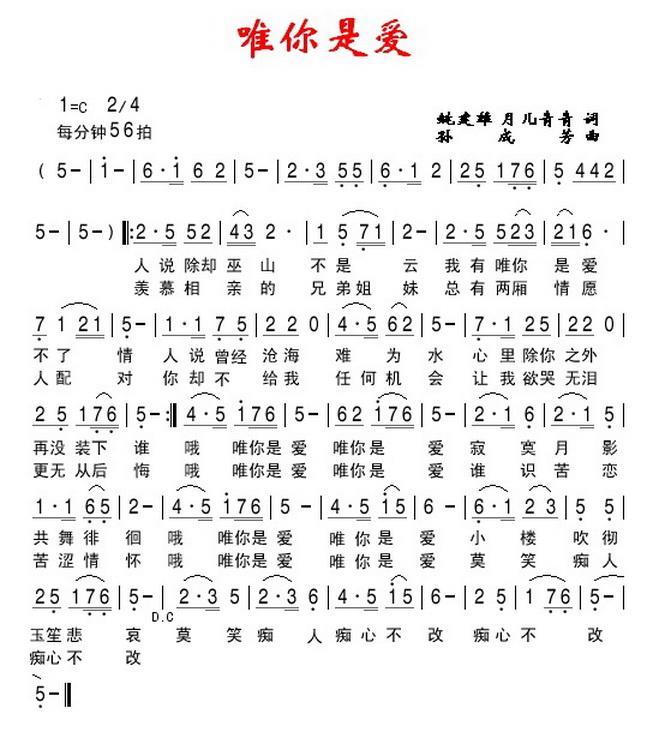 唯你是爱
1=C 2/4
每分钟56拍
姚建雄 月儿青青 词
孙成芳 曲
( 5 - | 1 - | 6 · 1 6 2 | 5 - | 2 · 3 5 5 | 6 · 1 2 | 2 5 1 7 6 | 5 4 4 2 |
5 - | 5 - ) ‖: 2 · 5 5 2 | 4 3 2 · | 1 5 7 1 | 2 - | 2 · 5 5 2 3 | 2 1 6 · |
人说除却巫山 不是 云 我有唯你 是爱
羡慕相 亲的 兄弟姐 妹 总有两厢 情愿
7 1 2 1 | 5 - | 1 · 1 7 5 | 2 2 0 | 4 · 5 6 2 | 5 - | 7 · 1 2 5 | 2 2 0 |
不了 情 人说曾经 沧海 难 为 水 心里除你 之外
人配 对 你却不 给我 任何机 会 让我欲哭 无泪
2 5 1 7 6 | 5 - :‖ 4 · 5 1 7 6 | 5 - | 6 2 1 7 6 | 5 - | 2 · 1 6 | 2 · 1 5 |
再没装下 谁 哦 唯你是 爱 唯你是 爱 寂 寞 月 影
更无从后 悔 哦 唯你是 爱 唯你是 爱 谁 识 苦 恋
1 · 1 6 5 | 2 - | 4 · 5 1 7 6 | 5 - | 4 · 5 1 5 | 6 - | 6 · 1 2 3 | 5 5 |
共舞徘 徊 哦 唯你是 爱 唯你是 爱 小 楼 吹 彻
苦涩情 怀 哦 唯你是 爱 唯你是 爱 莫 笑 痴 人
2 5 1 7 6 | 5 - | 2 · 3 5 | 2 · 3 6 | 4 · 5 1 5 | 6 - | 2 5 | 1 7 6 | 5 - |
D.C
玉笙悲 哀 莫 笑 痴 人 痴心不 改 痴心 不 改
痴心不 改
5 - ‖